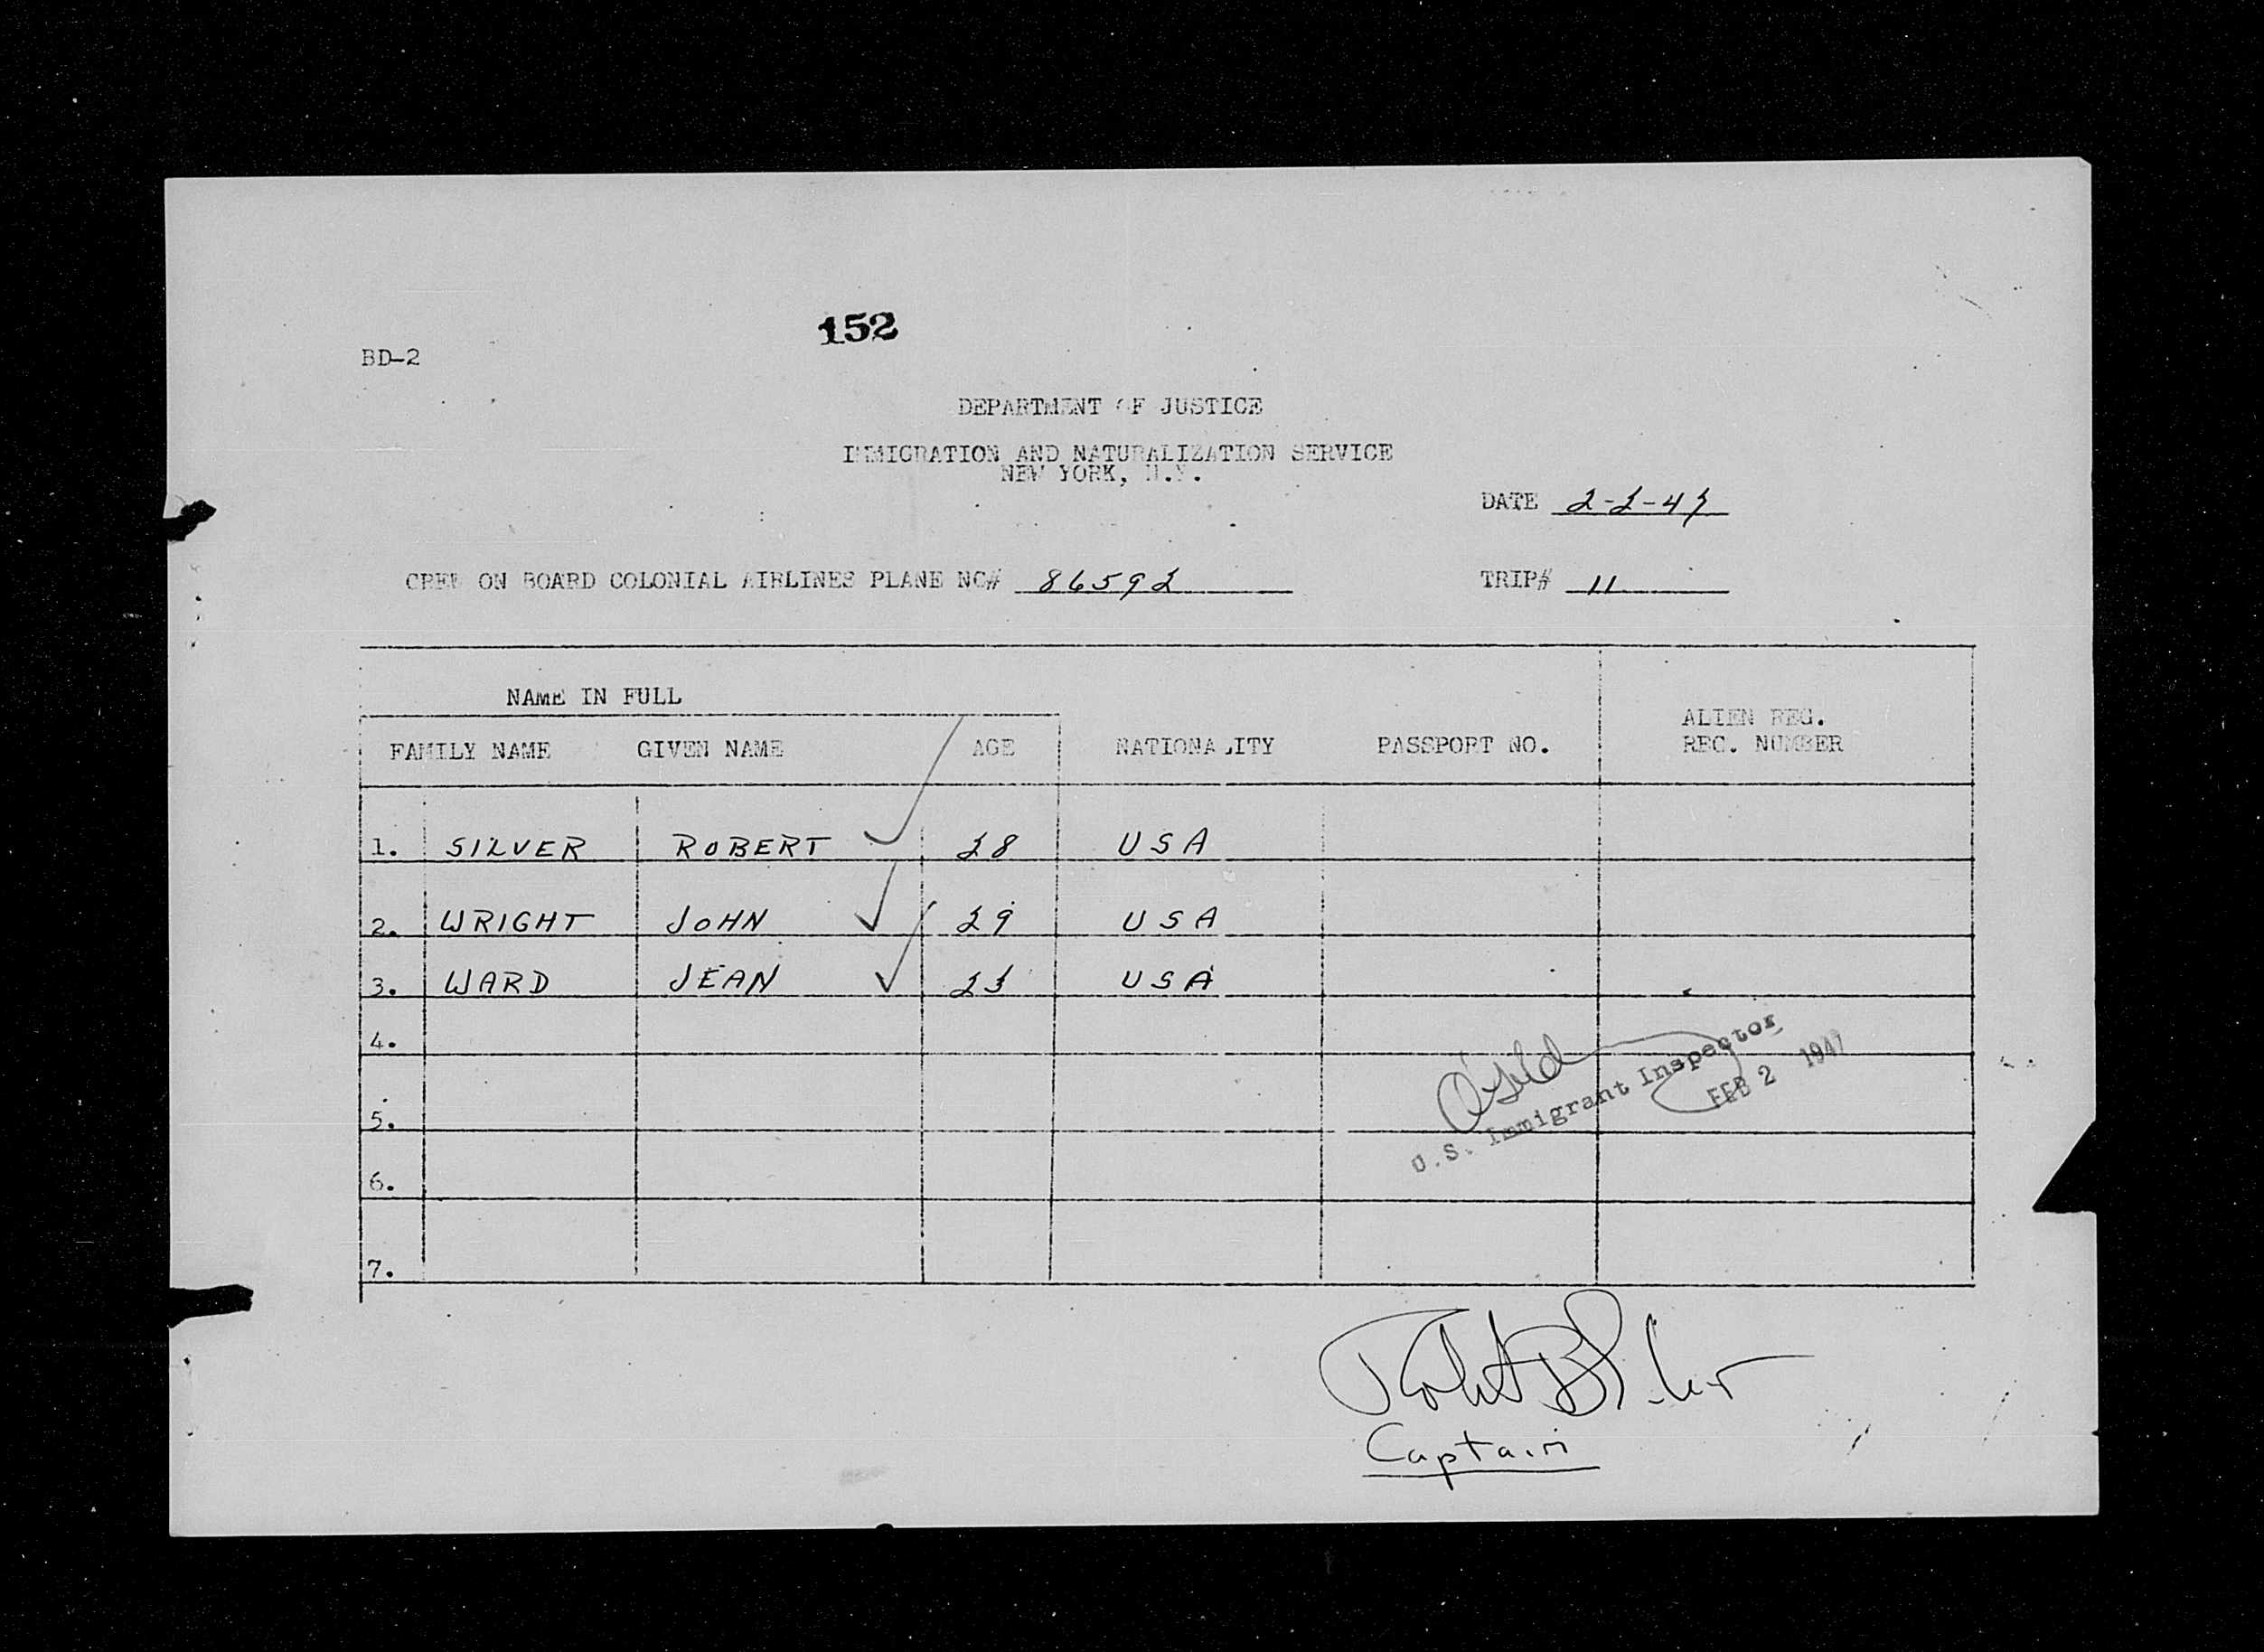 152
BD-2
DEPARTMENT OF JUSTICE
IMMIGRATION AND NATURALIZATION SERVICE
NEW YORK, N.Y.
DATE 2-2-47
CREW ON BOARD COLONIAL AIRLINES PLANE NC# 86592
TRIP# 11
NAME IN FULL
FAMILY NAME GIVEN NAME AGE NATIONALITY PASSPORT NO. ALIEN REG. REC. NUMBER
1. SILVER ROBERT 28 USA
2. WRIGHT JOHN 29 USA
3. WARD JEAN USA
4.
5.
6.
7.
U.S. Immigrant Inspector
FEB 2 1947
Captain